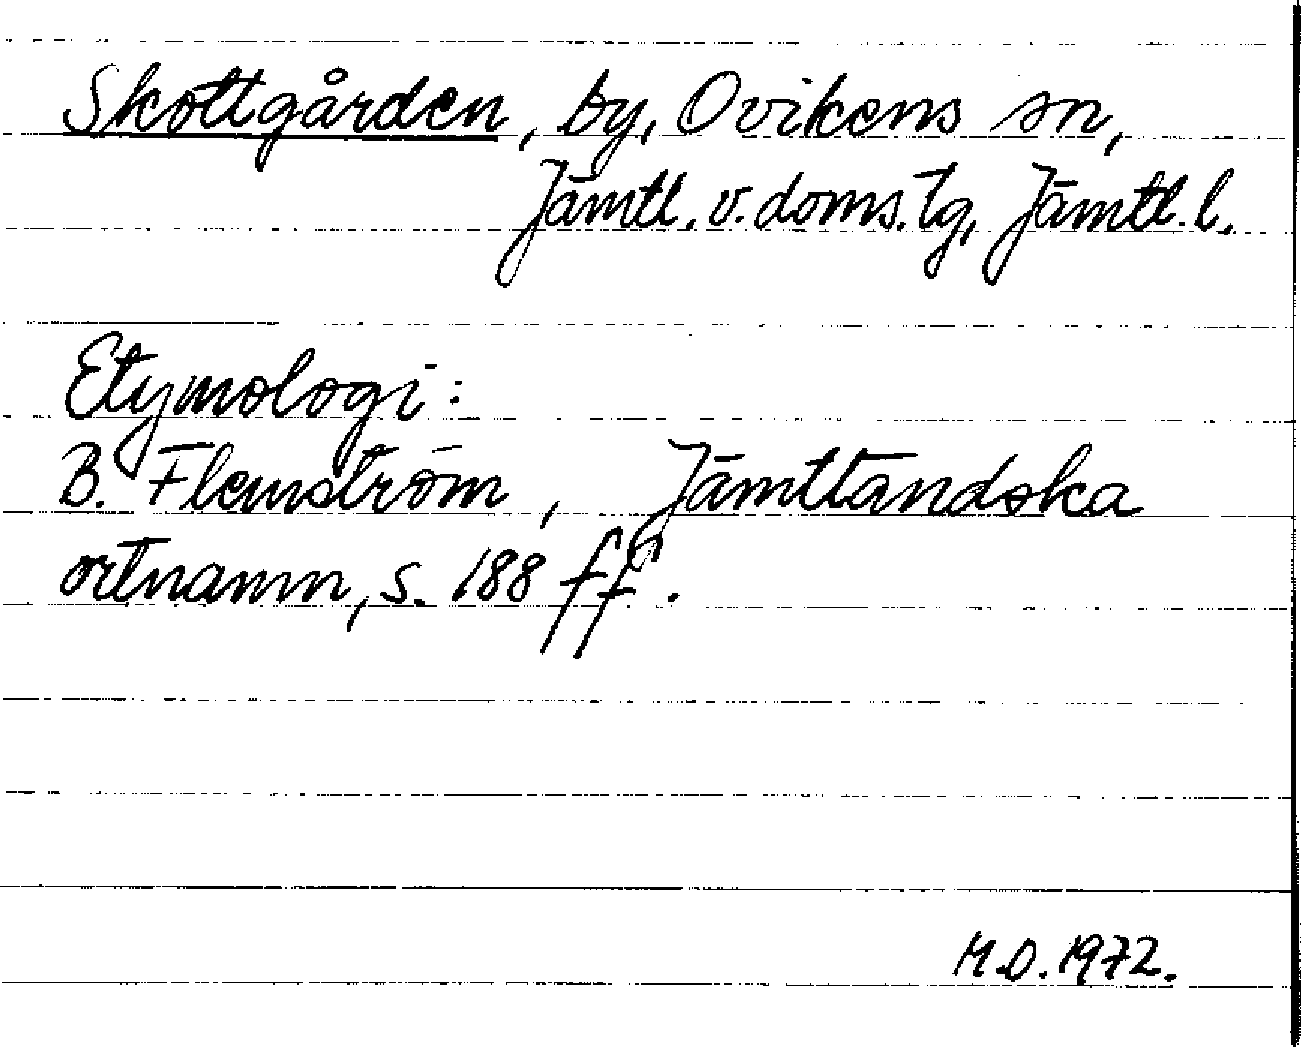 Skottgården, by, Ovikens sn,
Jämtl. v. doms. tg, Jämtl. l.
Etymologi:
B. Flemström, Jämtländska
ortnamn, s. 188 ff.
M.O. 1972.